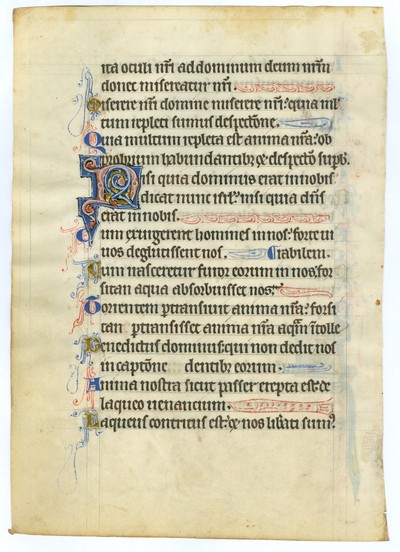 ita oculi nr̄i ad dominum deum nr̄um
donec misereatur nr̄i.
Miserere nr̄i domine miserere nr̄i: quia ml̄
tum repleti sumus despectōne.
Quia multum repleta est anima nr̄a: ob
probrium habundantibꝫ ⁊ despectō supb̄.
Nisi quia dominus erat in nobis
dicat nunc isrl̄: nisi quia dn̄s
erat in nobis.
Cum exurgerent homines in nos: forte ui
uos deglutissent nos. tiabilem.
Cum irasceretur furor eorum in nos: for
sitan aqua absorbuisset nos.
Torrentem ꝑtransiuit anima nr̄a: forsi
tan ꝑtransisset anima nr̄a aquā ītolle
Benedictus dominus: qui non dedit nos
in captōne dentibꝫ eorum.
Anima nostra sicut passer erepta est: de
laqueo uenantium.
Laqueus contritus est: ⁊ nos lib̄ati sumꝰ.